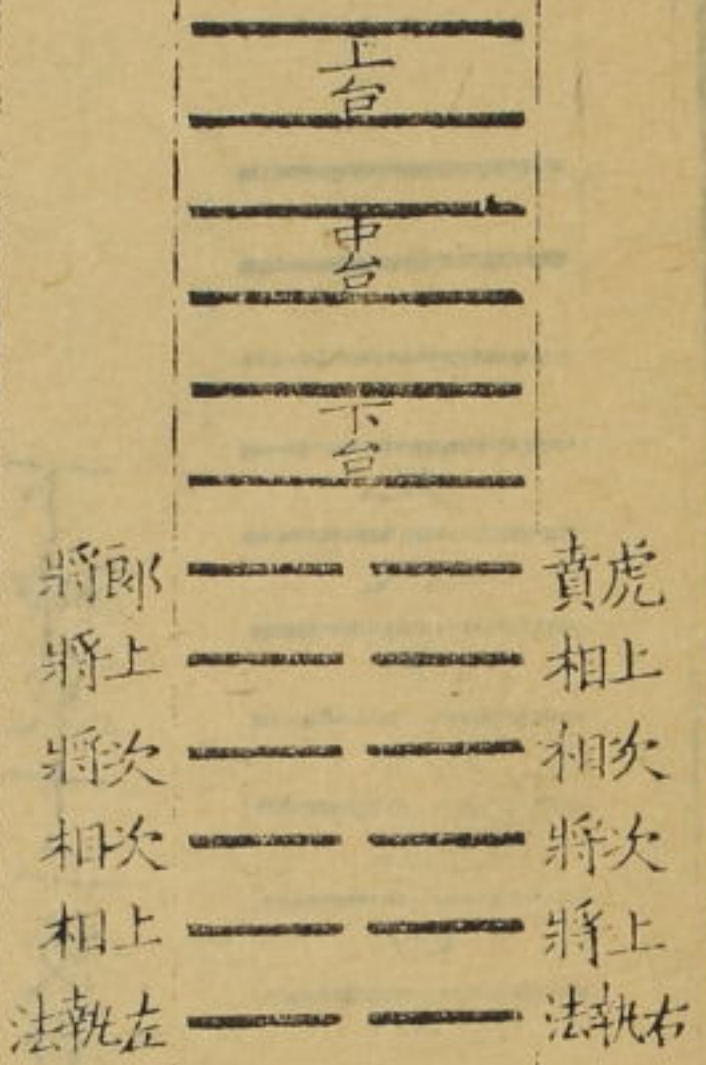 上台
中台
下台
虎賁
郎將
上相
上將
次相
次將
次將
次相
上將
上相
右執法
左執法